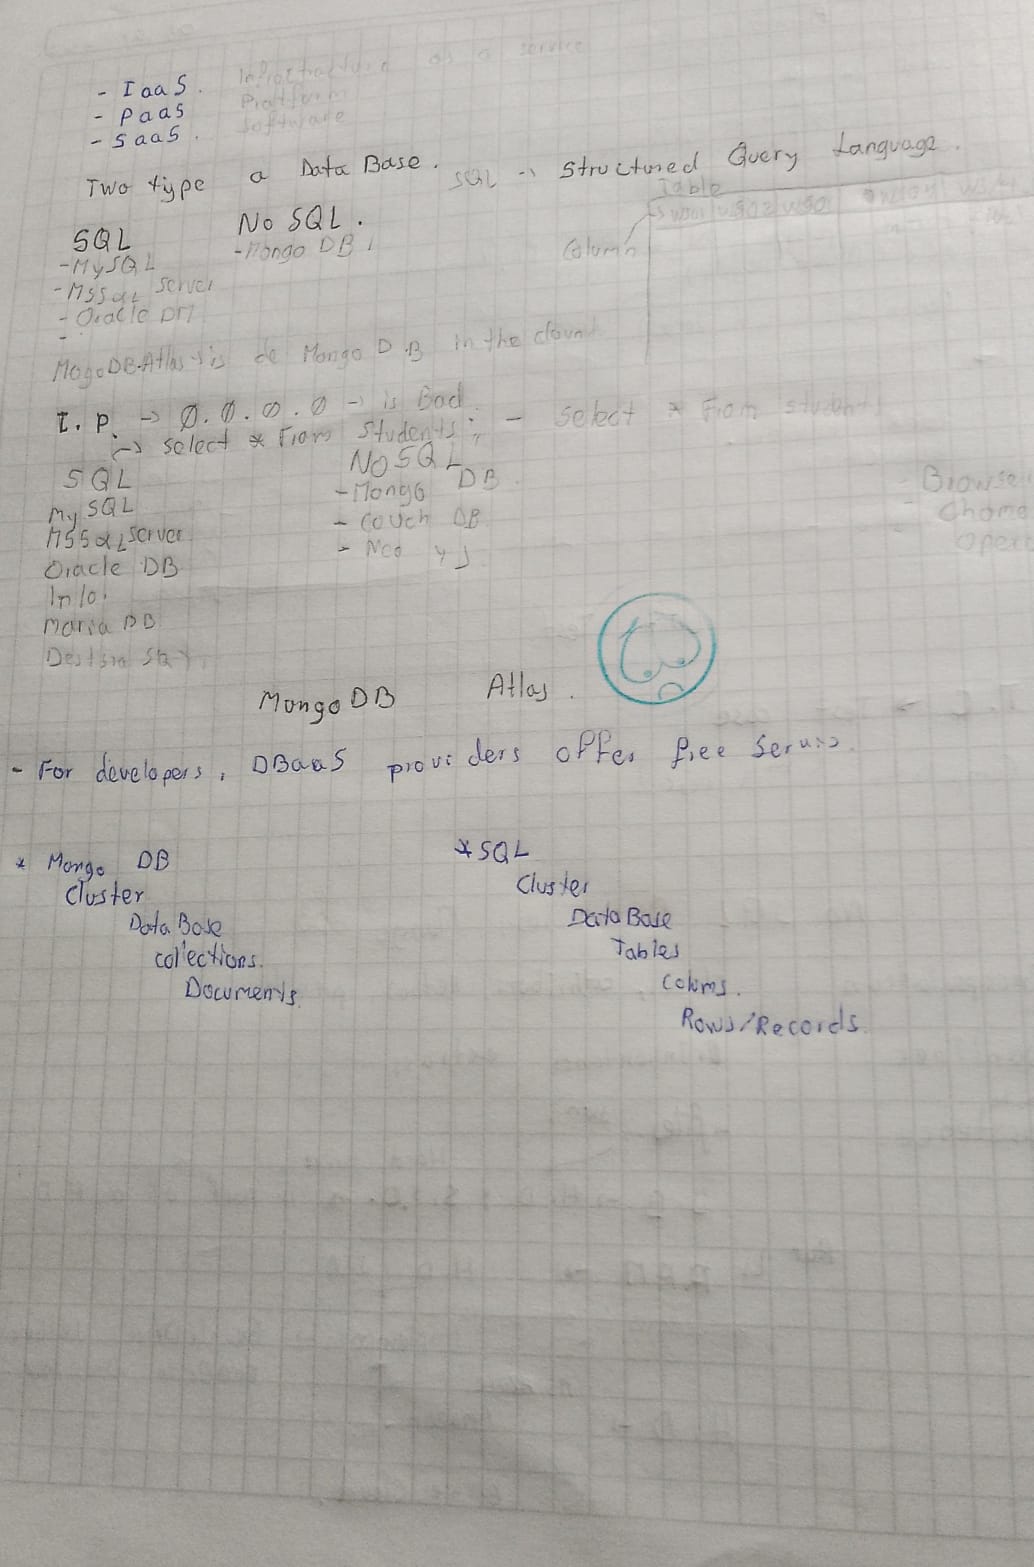 - IaaS. Infrastructure as a service
- PaaS Platform
- SaaS. Software
Two type a Data Base.
SQL -> Structured Query Language.
Table
SQL
No SQL.
- MySQL
- Mongo DB
Column
- MSSQL Server
- Oracle
MogoDB Atlas is de Mongo D.B in the cloun
I.P. -> 0.0.0.0 -> is Bad
-> select * From Students; - Select * From students
SQL
No SQL
My SQL
- Mongo DB
MSSQL server
- Couch DB
Oracle DB
- Neo 4J
Maria DB
Browser
- Chome
- Opera
Mongo DB Atlas.
- For developers, DBaaS providers offer free
* Mongo DB
Cluster
Data Base
collections.
Documents
* SQL
Cluster
Data Base
Tables
Colums.
Rows/Records.